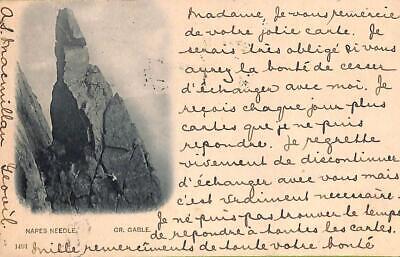 Madame, Je vous remercie
de votre jolie carte. Je
serais très obligé si vous
ayrez la bonté de cesser
d'échanger avec moi. Je
reçois chaque jour plus
cartes que je ne puis
repondre. Je regrette
vivement de discontinuer
d'échanger avec vous mais
c'est vraiment necessaire.
Je ne puis pas trouver le temps
de repondre à toutes les cartes.
Mille remerciments de toute votre bonté
A.S. Macmillan Yeovil.
NAPES NEEDLE. GR. GABLE.
1491